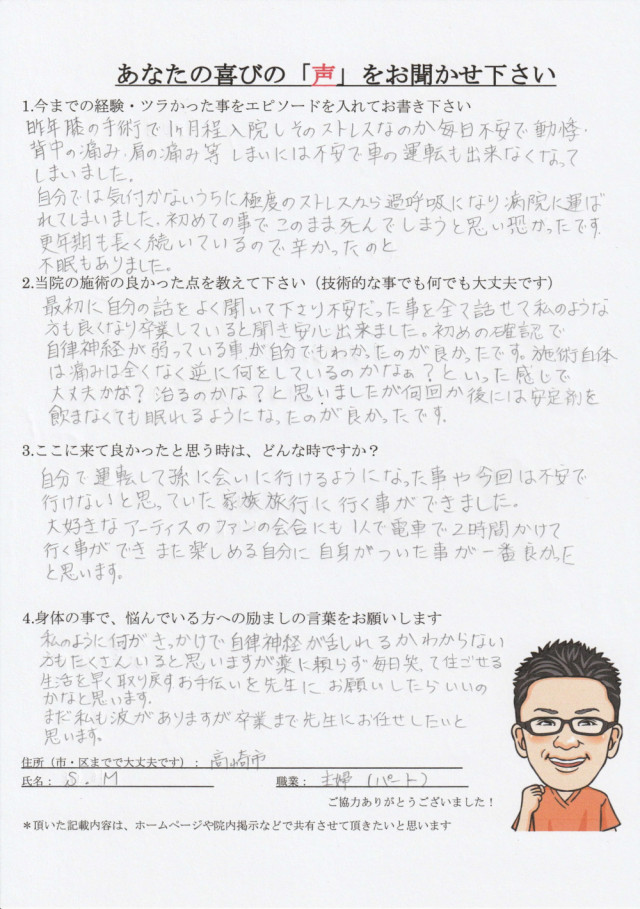 あなたの喜びの「声」をお聞かせ下さい
1.今までの経験・ツラかった事をエピソードを入れてお書き下さい
昨年膝の手術で1ヶ月程入院しそのストレスなのか毎日不安で動悸・
背中の痛み・肩の痛み等 しまいには不安で車の運転も出来なくなって
しまいました。
自分では気付かないうちに極度のストレスから過呼吸になり病院に運ば
れてしまいました。初めての事でこのまま死んでしまうと思い恐かったです。
更年期も長く続いているので辛かったのと
不眠もありました。
2.当院の施術の良かった点を教えて下さい（技術的な事でも何でも大丈夫です）
最初に自分の話をよく聞いて下さり不安だった事を全て話せて私のような
方も良くなり卒業していると聞き安心出来ました。初めの確認で
自律神経が弱っている事が自分でもわかったのが良かったです。施術自体
は痛みは全くなく逆に何をしているのかなぁ？といった感じで
大丈夫かな？治るのかな？と思いましたが何回か後には安定剤を
飲まなくても眠れるようになったのが良かったです。
3.ここに来て良かったと思う時は、どんな時ですか？
自分で運転して孫に会いに行けるようになった事や今回は不安で
行けないと思っていた家族旅行に行く事ができました。
大好きなアーティスのファンの会合にも1人で電車で2時間かけて
行く事ができ また楽しめる自分に自身がついた事が一番良かった
と思います。
4.身体の事で、悩んでいる方への励ましの言葉をお願いします
私のように何がきっかけで自律神経が乱れるかわからない
方もたくさんいると思いますが薬に頼らず毎日笑って住ごせる
生活を早く取り戻すお手伝いを先生にお願いしたらいいの
かなと思います。
まだ私も波がありますが卒業まで先生にお任せしたいと
思います。
住所（市・区までで大丈夫です）：高崎市
氏名：S.M 職業：主婦（パート）
ご協力ありがとうございました！
＊頂いた記載内容は、ホームページや院内掲示などで共有させて頂きたいと思います